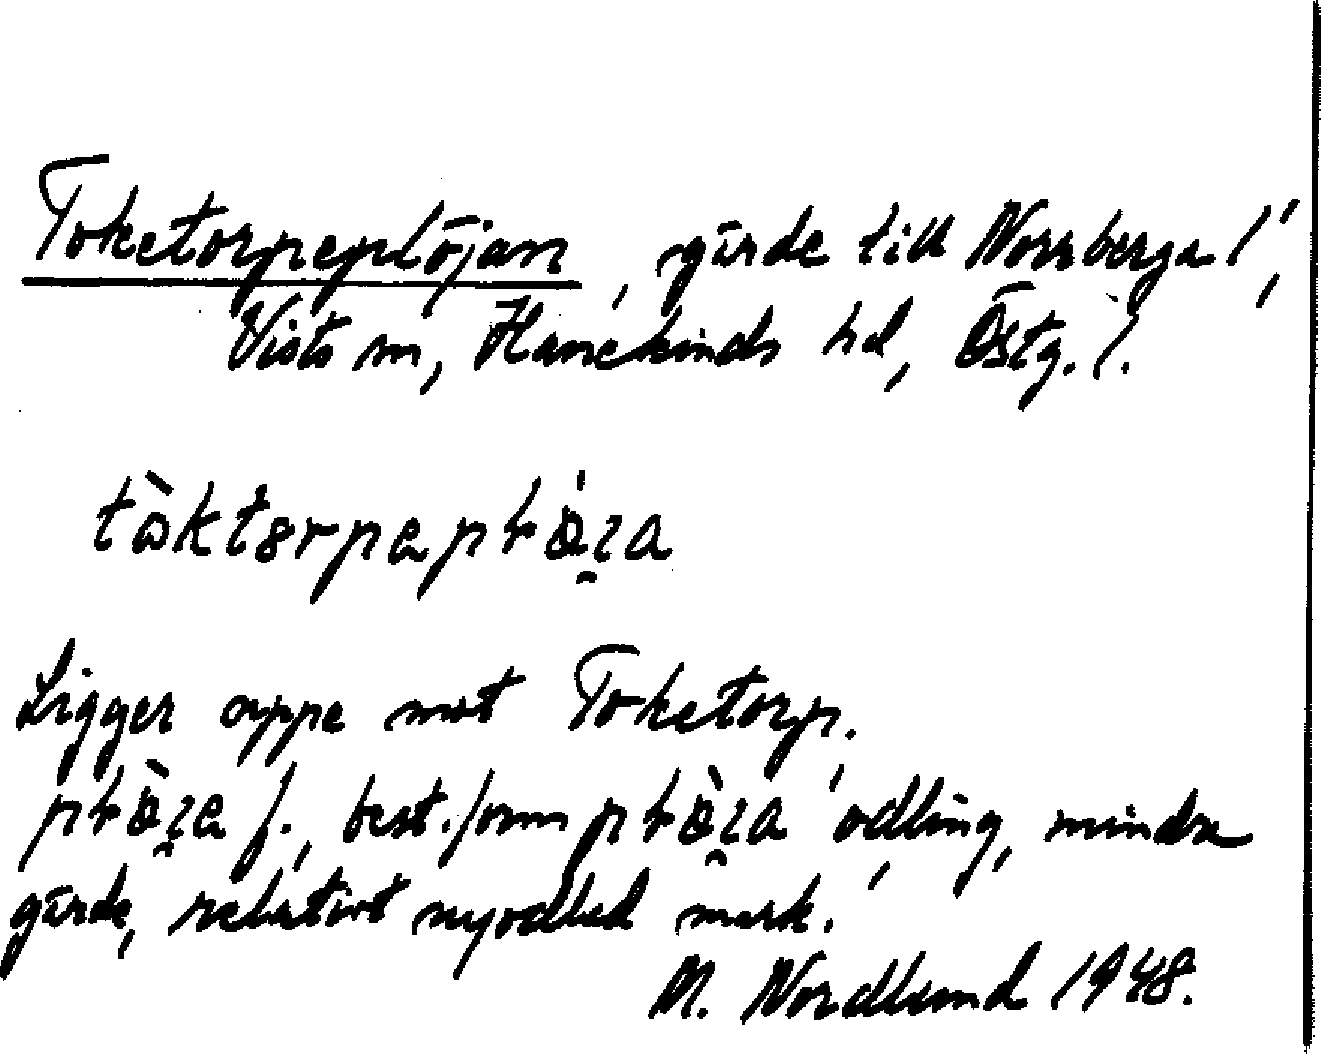 Toketorpeplöjan, gärde till Norrberga 1¹,
Vists sn, Hanekinds hd, Östg. l.
Ligger uppe mot Toketorp.
f., best. form 'odling, mindre
gärde, relativt nyodlad mark.'
M. Nordlund 1948.